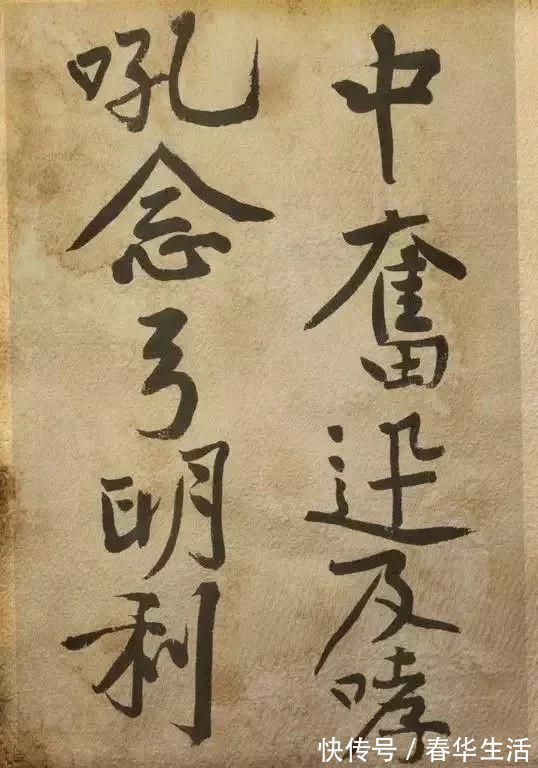 中奮迅及哮
吼念弓明利
快传号/春华生活